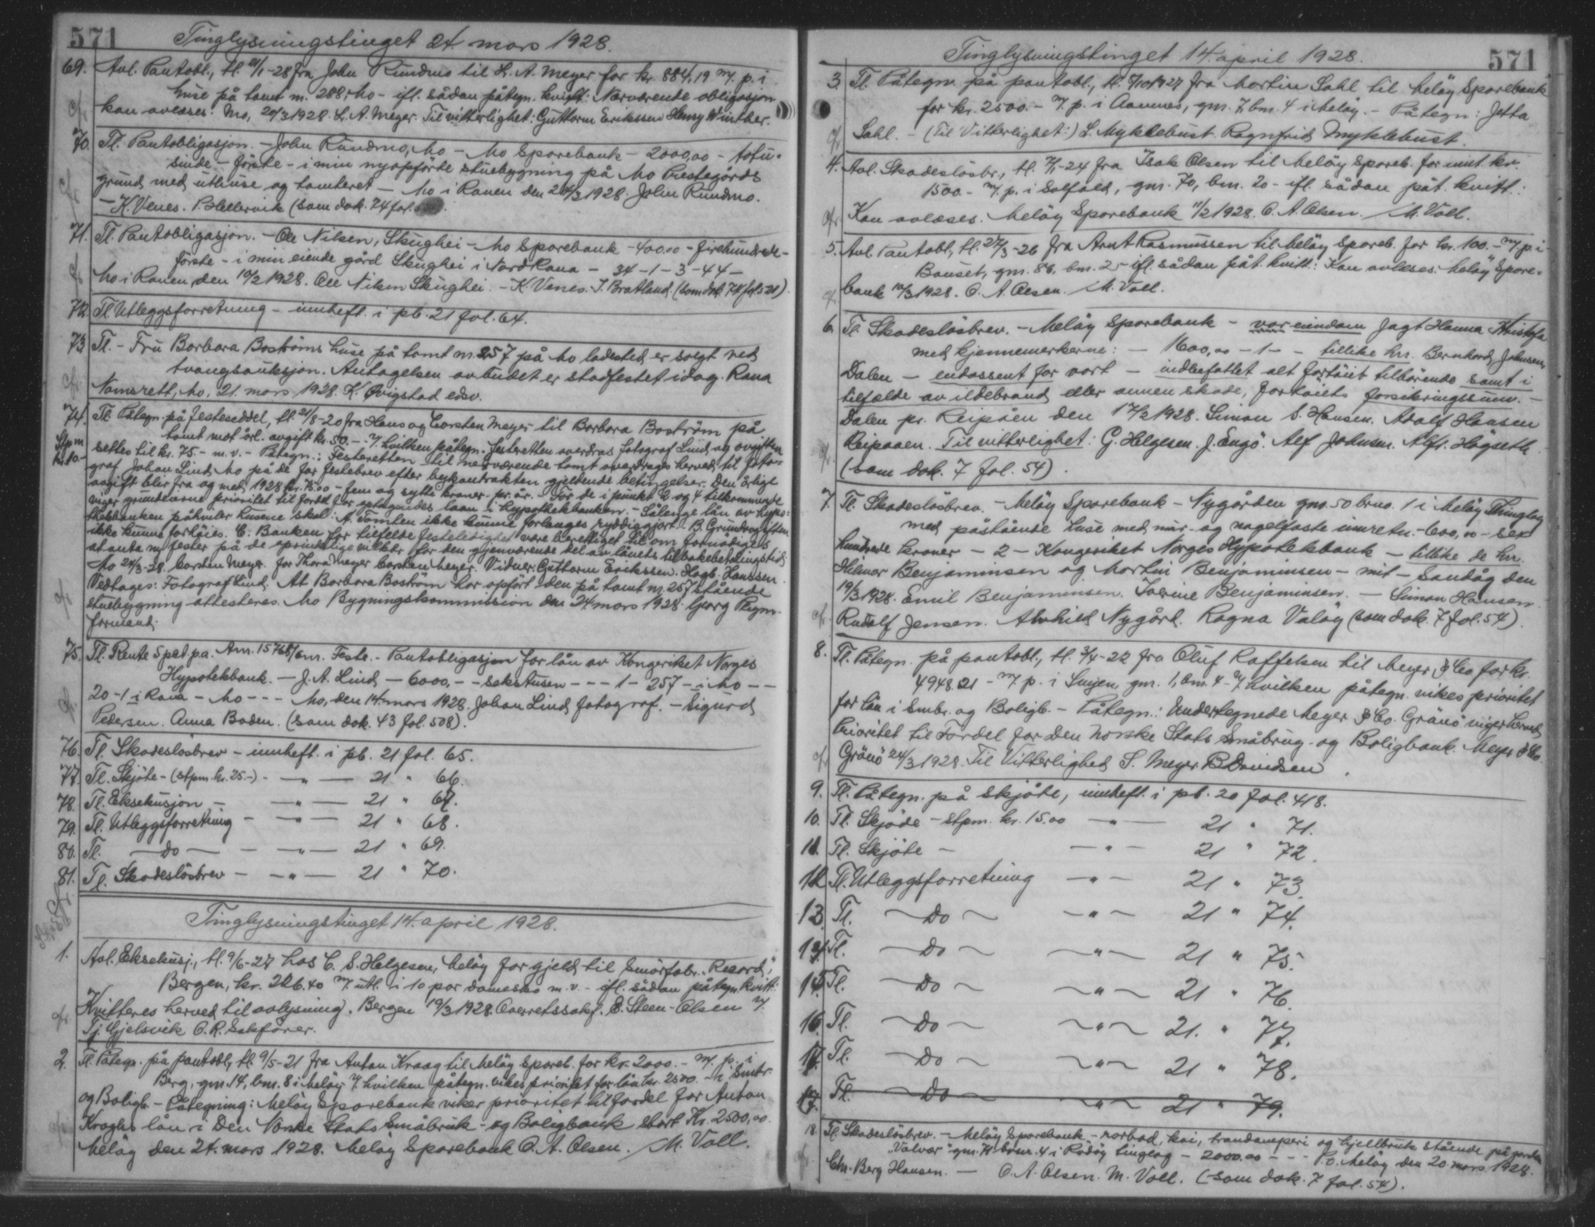 571
Tinglysningstinget 24 mars 1928.
69. Avl. Pantobl., tl. fra John Rundmo til L. A. Meyer for kr. 884,19 m/ p. i
huse på tomt m. 288, Mo - ifl. sådan påtegn. kvitt: Nærværende obligasjon
kan avleses. Mo, 20/3 1928. L. A. Meyer. Til vitterlighet: Guttorm Erikssen Henry Winther.
70. Tl. Pantobligasjon. - John Rundmo, Mo - Mo Sparebank - 2000,00 - totu-
sinde - første - i min nyopførte stuebygning på Mo Prestegårds
grund med uthuse og tomteret - Mo i Ranen den 20/3 1928. John Rundmo.
- K. Venes. (som dok. 74 fol.
71. Tl. Pantobligasjon. - Ole Nilsen, Skughei - Mo Sparebank - 400,00 - firehundrede -
første - i min eiende gård Skughei i Nord Rana - 34 - 1 - 3 - 44 -
Mo i Ranen den 10/2 1928. Ole Nilsen Skughei. - K. Venes. J. Bratland. (som dok. 74 fol. 521).
72. Tl. Utleggsforretning - innheft. i pb. 21 fol. 64.
73. Tl. - Fru Barbara Boströms huse på tomt nr. 257 på Mo ladested er solgt ved
tvangsauksjon. Antagelsen av budet er stadfestet idag. Rana
Namsrett, Mo, 21. mars 1928. K. Qvigstad edsv.
74. Tl. Påtegn. på festeseddel, tl. 21/8-20 fra Hans og Carsten Meyer til Barbara Boström på
tomt mot årl. avgift kr. 50. - v/ hvilken påtegn. festeretten overdras fotograf Lind og avgiften
settes til kr. 75 - m. v. - Påtegn.: Festeretten til nærværende tomt overdrages herved til foto-
graf Johan Lind, Mo på de for festebrev efter bykontrakten gjeldende betingelser. Den årlige
avgift blir fra og med 1928 kr. 75.00 - fem og sytti kroner pr. år. - For de i punkt 2 og 4 tilkommende
viger grundeierne prioritet til fordel for optagendes laan i Hypothekbanken. - Sålenge lån av Hypo-
thekbanken påhviler husene skal: A. Tomten ikke kunne forlanges ryddiggjort. B. Grundavgiften
ikke kunne forhøies. C. Banken for tilfelde festeledighet være berettiget til om fornødiges
at anta ny fester på de oprindelige vilkår for den gjenværende del av lånets tilbakebetalingstid.
Mo 24/3-28. Carsten Meyer. for Thora Meyer Carsten Meyer. Vidner: Guttorm Erikssen. Hagb. Hanssen.
Vedtages: Fotograf Lind. At Barbara Boström har opført den på tomt nr. 257 stående
stuebygning attesteres. Mo Bygningskommission den 24 mars 1928. Georg
formand.
75. Tl. Rente 5 pct. p.a. - Pantobligasjon for lån av Kongeriket Norges
Hypotekbank. - J. A. Lind, - 6000,- - sekstusen - - - 1 - 257 - i Mo - -
20 - 1 i Rana - Mo - - - Mo, den 14. mars 1928. Johan Lind fotograf. - Sigurd
Pedersen. Anna Boden. (som dok. 43 fol. 508).
76. Tl. Skadesløsbrev - innheft. i pb. 21 fol. 65.
77. Tl. Skjøte - (stpm. kr. 25.-) - - " - 21 " 66.
78. Tl. Eksekusjon - - " - 21 " 67.
79. Tl. Utleggsforretning - - " - 21 " 68.
80. Tl. - do - - - " - 21 " 69.
81. Tl. Skadesløsbrev - - " - 21 " 70.
Tinglysningstinget 14. april 1928.
1. Avl. Eksekusj., tl. 9/6-27 hos C. S. Helgesen, Meløy for gjeld til Smørfabr. "Record",
Bergen, kr. 226.40 m/ utl. i 10 par damesko m.v. - ifl. sådan påtegn. kvitt:
Kvitteres herved til avlysning. Bergen 19/3 1928. Overretssakf. E. Steen-Olsen v/
Gjelsvik O. R. Sakfører.
2. Tl. Påtegn. på pantobl., tl. 9/5-21 fra Anton Kraag til Meløy Spareb. for kr. 2000. - m/ p. i
Berg, gnr. 14, bnr. 8 i Meløy v/ hvilken påtegn. vikes prioritet for lån kr. 2500. - i Småbr.
og Boligb. - Påtegning: Meløy Sparebank viker prioritet til fordel for Anton
Kraghs lån i Den Norske Stats Småbruk- og Boligbank stort Kr. 2500,00.
Meløy den 24. mars 1928. Meløy Sparebank O. A. Olsen. M. Voll.
571
Tinglysningstinget 14. april 1928.
3. Tl. Påtegn. på pantobl., tl. fra Martin Dahl til Meløy Sparebank
for kr. 2500. - m/ p. i Aamnes, gnr. 7, bnr. 4 i Meløy. - Påtegn: Jetta
Dahl. - (Til Vitterlighet:) L. Myklebust Ragnfrid Myklebust.
4. Avl. Skadesløsbr., tl. fra Isak Olsen til Meløy Spareb. for inntil kr.
1500. - m/ p. i Solfald, gnr. 70, bnr. 20 - ifl. sådan påt. kvitt:
Kan avleses. Meløy Sparebank 11/2 1928. O. A. Olsen. M. Voll.
5. Avl. Pantobl., tl. 27/3-26 fra Arnt Rasmussen til Meløy Spareb. for kr. 100. - m/ p i
Bauset, gnr. 88, bnr. 2 - ifl. sådan påt. kvitt: Kan avleses. Meløy Spare-
bank 12/3 1928. O. A. Olsen. M. Voll.
6. Tl. Skadesløsbrev. - Meløy Sparebank - vor eiendom Jagt Hanna Kristofa
med kjennemerkerne: - 1600,00 - 1 - - tillike hr. Bernhard Johnsen
Dalen - endossent for vort - indbefattet alt fartøiet tilhørende samt i
tilfælde av ildebrand eller annen skade, fartøiets forsikringssum. -
Dalen pr. Reipåen den 17/3 1928. Simon S. Hansen. Adolf Hansen
Reipaaen. Til vitterlighet: G. Helgesen. J. Engø. Alf Johnsen. Alfr. Høgseth
(som dok. 7 fol. 54).
7. Tl. Skadesløsbrev. - Meløy Sparebank - Nygården gnr. 50 brno. 1 i Meløy Thinglag
med påstående huse med mur- og nagelfaste innretn. - 600,00 - seks
hundrede kroner - 2 - Kongeriket Norges Hypotekbank - tillike de hr.
Hilmar Benjaminsen og Martin Benjaminsen - mit - Sandåg den
19/3 1928. Emil Benjaminsen. Benjaminsen. - Simon Hansen
Rudolf Jensen. Alvhild Nygård. Ragna Valøy (som dok. 7 fol. 54).
8. Tl. Påtegn. på pantobl., tl. 3/4-22 fra Oluf Raffelsen til Meyer & Co for kr.
4948.21 - m/ p. i Svejen, gnr. 1, bnr. 4 - v/ hvilken påtegn. vikes prioritet
for lån i Småbr. og Boligb. - Påtegn.: Undertegnede Meyer & Co. Grønø viger herved
Prioritet til Fordel for Den norske Stats Småbrug- og Boligbank. Meyer & Co.
Grønø 24/3 1928. Til Vitterlighed S. Meyer B. Davidsen.
9. Tl. Påtegn. på skjøte, innheft. i pb. 20 fol. 418.
10. Tl. Skjøde - stpm. kr. 15.00 - " - 21 " 71.
11. Tl. Skjøte - - " - 21 " 72.
12. Tl. Utleggsforretning - " - 21 " 73.
13. Tl. - Do - - " - 21 " 74.
14. Tl. - Do - - " - 21 " 75.
15. Tl. - Do - - " - 21 " 76.
16. Tl. - Do - - " - 21. " 77.
17. Tl. - Do - - " - 21 " 78.
17. Tl. - Do - - " - 21 " 79.
18. Tl. Skadesløsbrev. - Meløy Sparebank - rorbod, kai, trandamperi og hjellbruk stående på garden
"Valvær" gnr. bnr. 4 i Rødøy tinglag - 2000.00 - - - Meløy den 20 mars 1928.
Chr. Berg Hansen. - O. A. Olsen. M. Voll. (som dok. 7 fol. 54).